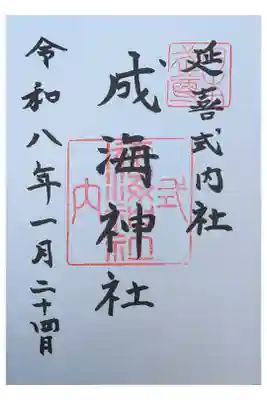 延喜式内社
成海神社
令和八年一月二十四日